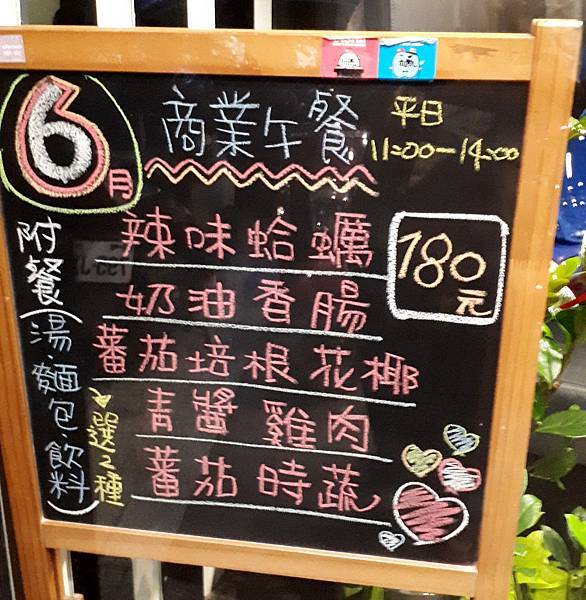 6月
商業午餐
平日
11:00-14:00
辣味蛤蠣
奶油香腸
蕃茄培根花椰
青醬雞肉
蕃茄時蔬
180元
附餐(湯.麵包.飲料)
選2種